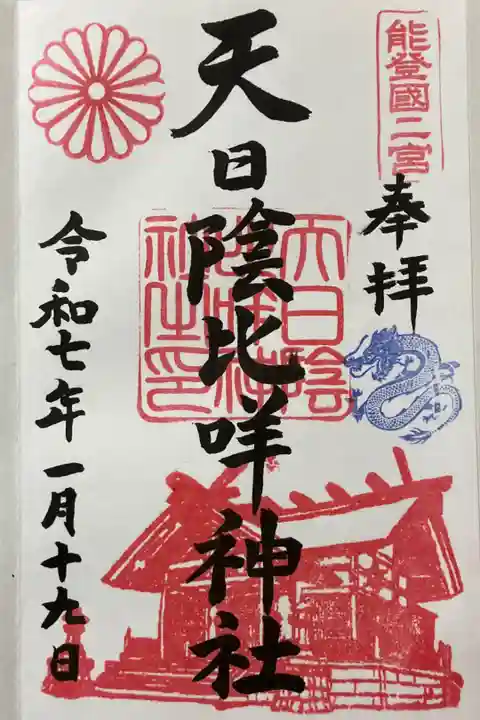 能登國二宮
奉拝
天日陰比咩神社
天日陰
比咩神
社之印
令和七年一月十九日